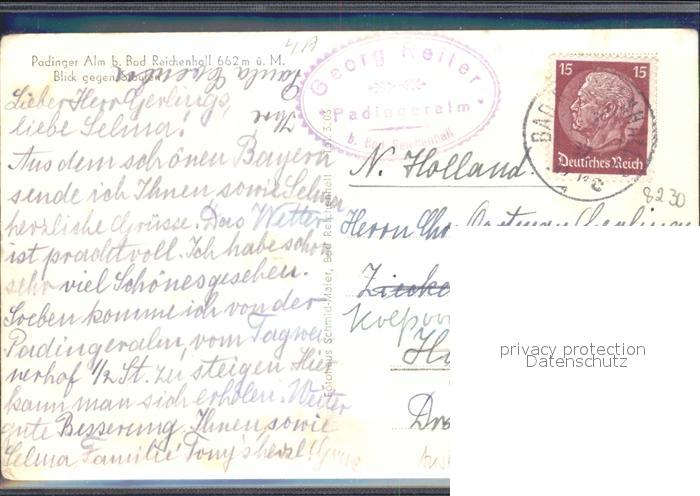 Padinger Alm b. Bad Reichenhall 662 m ü. M.
Blick gegen
Lieber Herr Gerlings,
liebe Selma!
Aus dem schönen Bayern
sende ich Ihnen sowie Selma
herzliche Grüsse. Das Wetter
ist prachtvoll. Ich habe schon
sehr viel Schönes gesehen.
Soeben komme ich von der
Padingeralm, vom Tagwei-
nerhof 1/2 St. zu steigen. Hier
kann man sich erholen. Weiter
gute Besserung. Ihnen sowie
Selma, Familie Tony's herzl. Grüße
Ihre
Paula
4A
Georg Reiter
Padingeralm
b. Bad Reichenhall
Fotohaus Schmid-Maier, Bad Reichenhall
3.03
15 15
Deutsches Reich
BAD
8230
N. Holland.
Herrn Chr.
privacy protection
Datenschutz